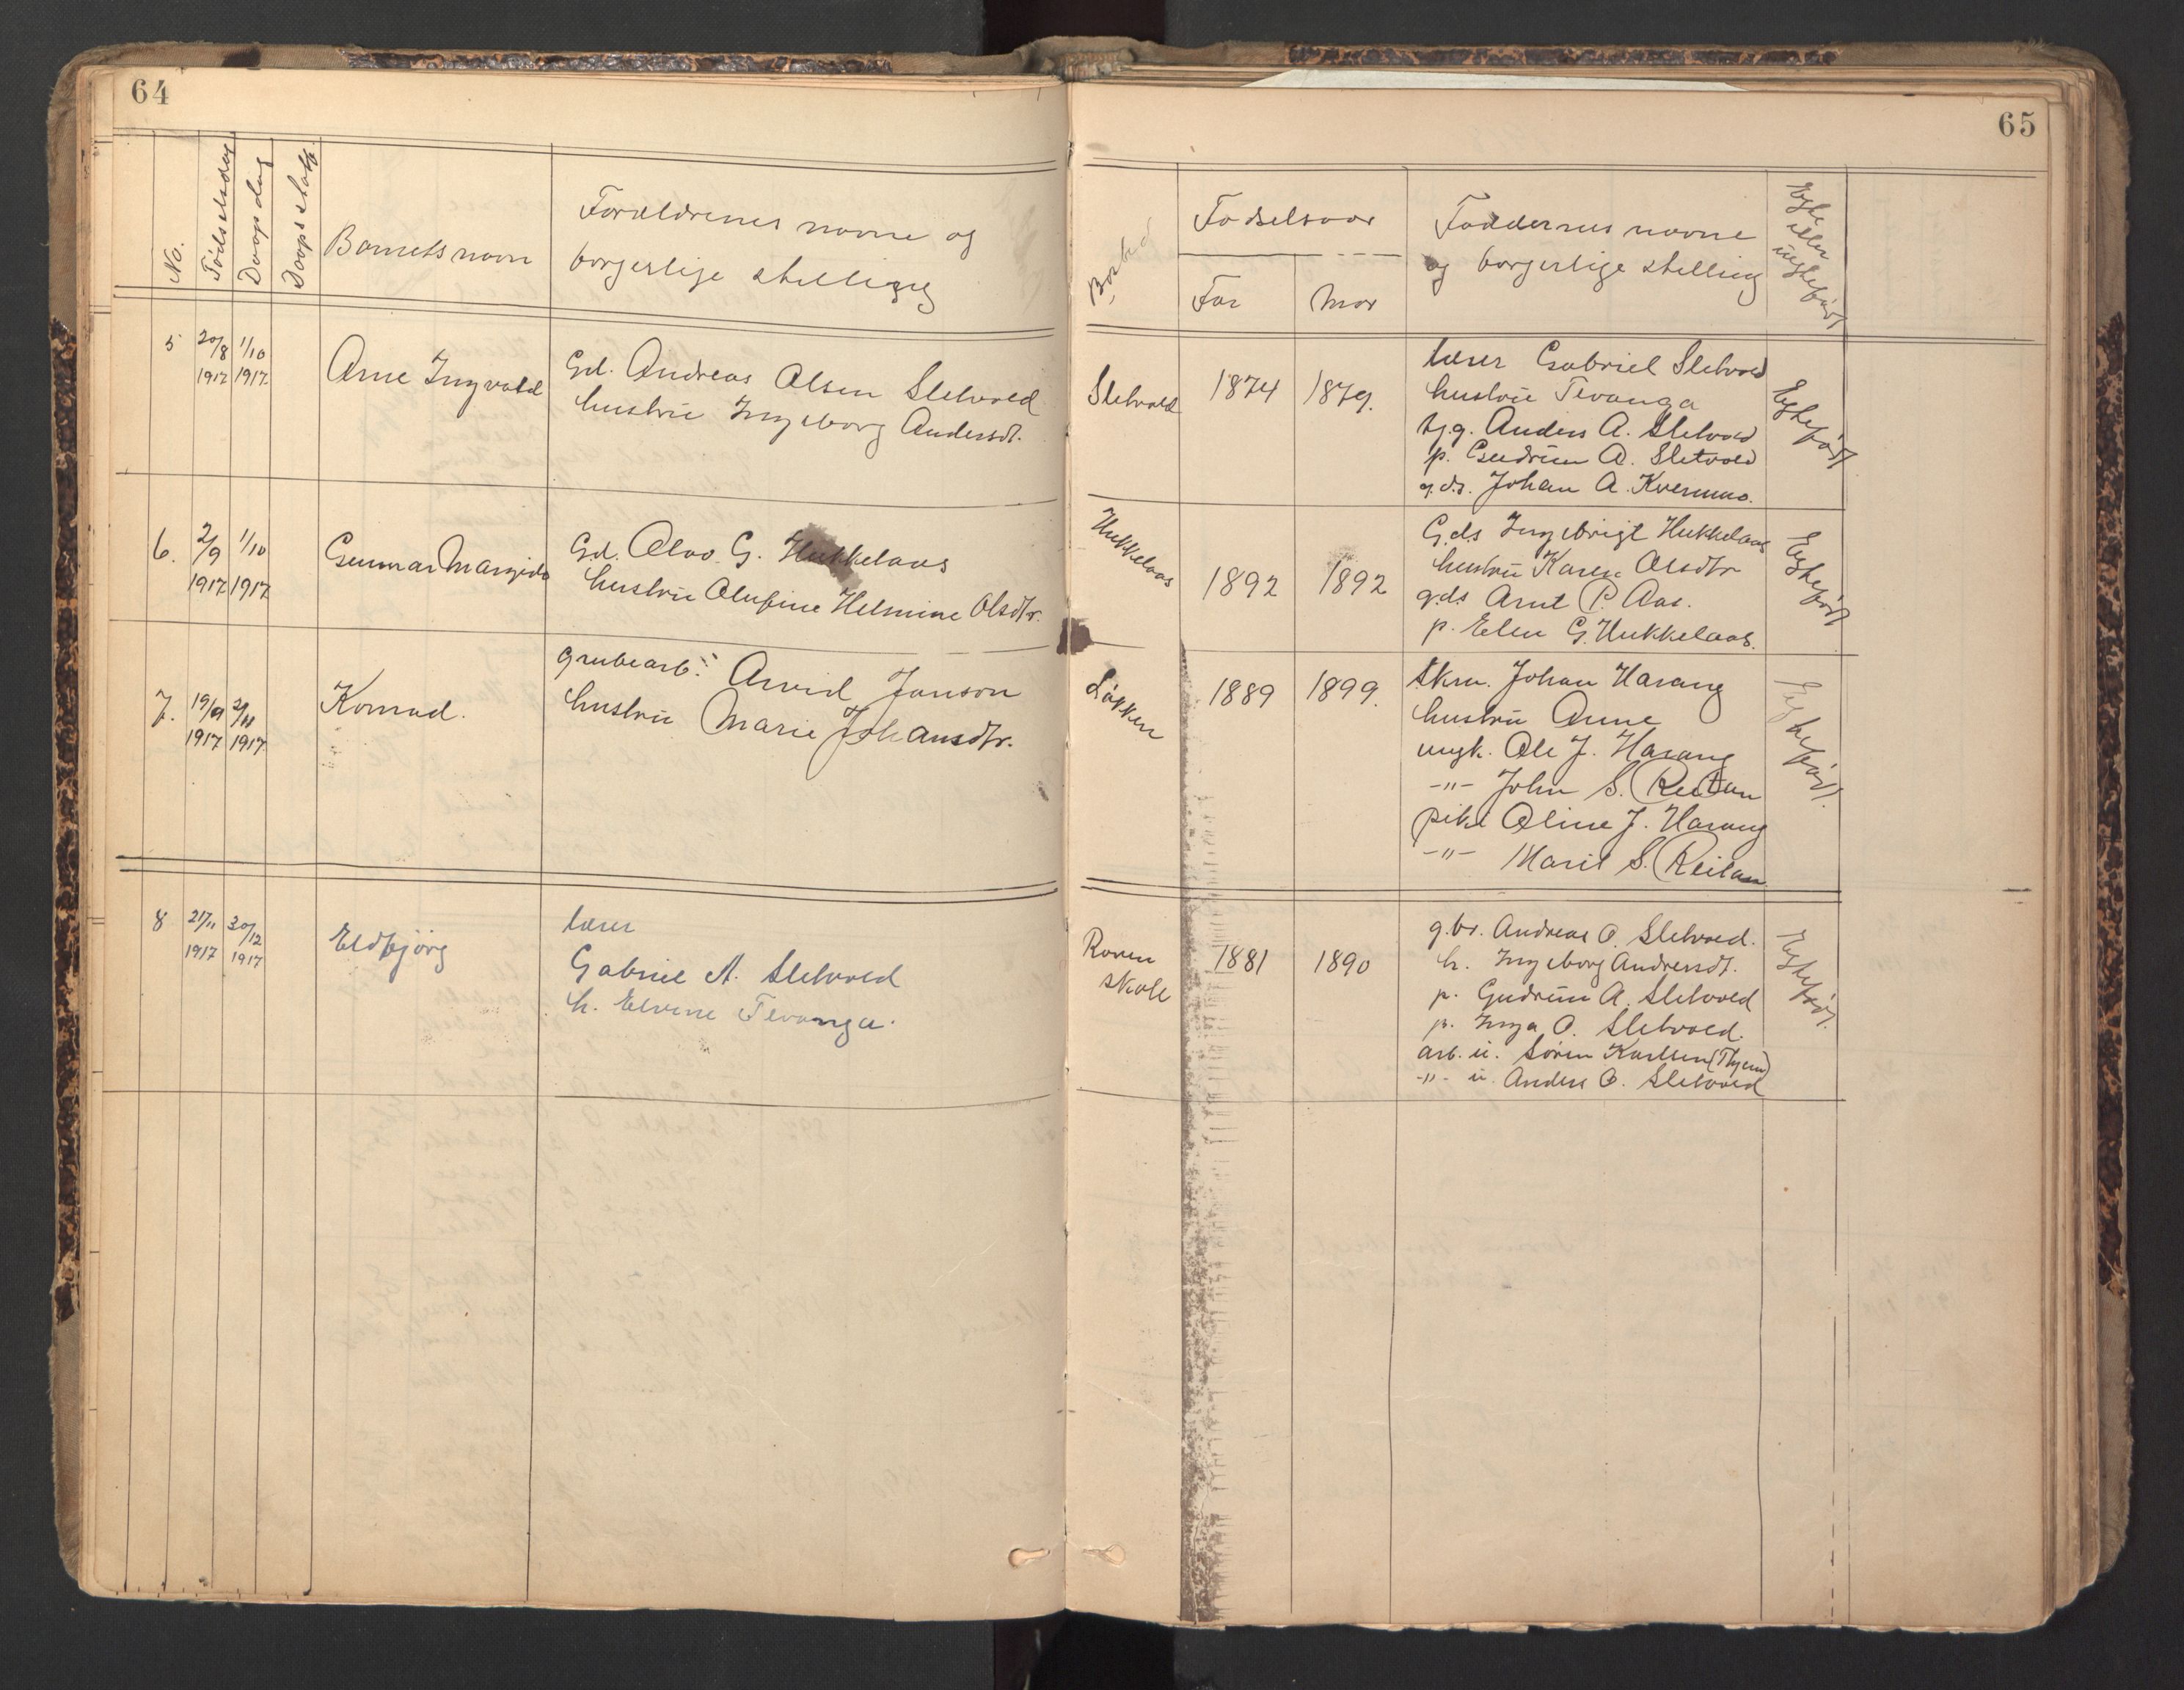 64
No.
Födselsdag
Daapsdag
Daaps stadf.
Barnets navn
Forældrenes navne og
borgerlige stelling
5
20/8 1/10
1917 1917
Arne Ingvald
Gd. Andreas Olsen Sletvold
hustru Ingeborg Andersdt.
6.
2/9 1/10
1917 1917
Gunnar Margido
Gd. Olav G. Hukkelaas
hustru Olufine Helmine Olsdtr.
7.
19/9 2/11
1917 1917
Konrad.
Grubearb. Arvid Janson
hustru Marie Johansdtr.
8
21/11 30/12
1917 1917
Eldbjörg
lærer
Gabriel A. Sletvold
h. Elvine Tevanga.
65
Bosted
Fodselsaar
Far
Mor
Faddernes navne
og borgerlige stelling
Egte
eller
uegtefödt
Sletvold
1874
1879.
lærer Gabriel Sletvold
hustru Tevanga
tj.g. Anders A. Sletvold
p. Gudrun A. Sletvold
g.ds. Johan A. Kvernmo.
Egtefödt
Hukkelaas
1892
1892
G.ds Ingebrigt Hukkelaas
hustru Karen Olsdtr
g.ds Arnt P. Aas.
p. Elen G. Hukkelaas.
Egtefödt
Løkken
1889
1899.
Skm. Johan Harang
hustru Anne
ungk. Ole J. Harang
-"- John S. Reitan
pike Oline J. Harang
-"- Marit S. Reitan
Egtefödt.
Roven
skole
1881
1890
g.br. Andreas O. Sletvold.
h. Ingeborg Andersdt.
p. Gudrun A. Sletvold
p. Inga O. Sletvold.
arb. u. Sören Karlsen (Thyem)
-"- u. Anders O. Sletvold
Egtefödt.